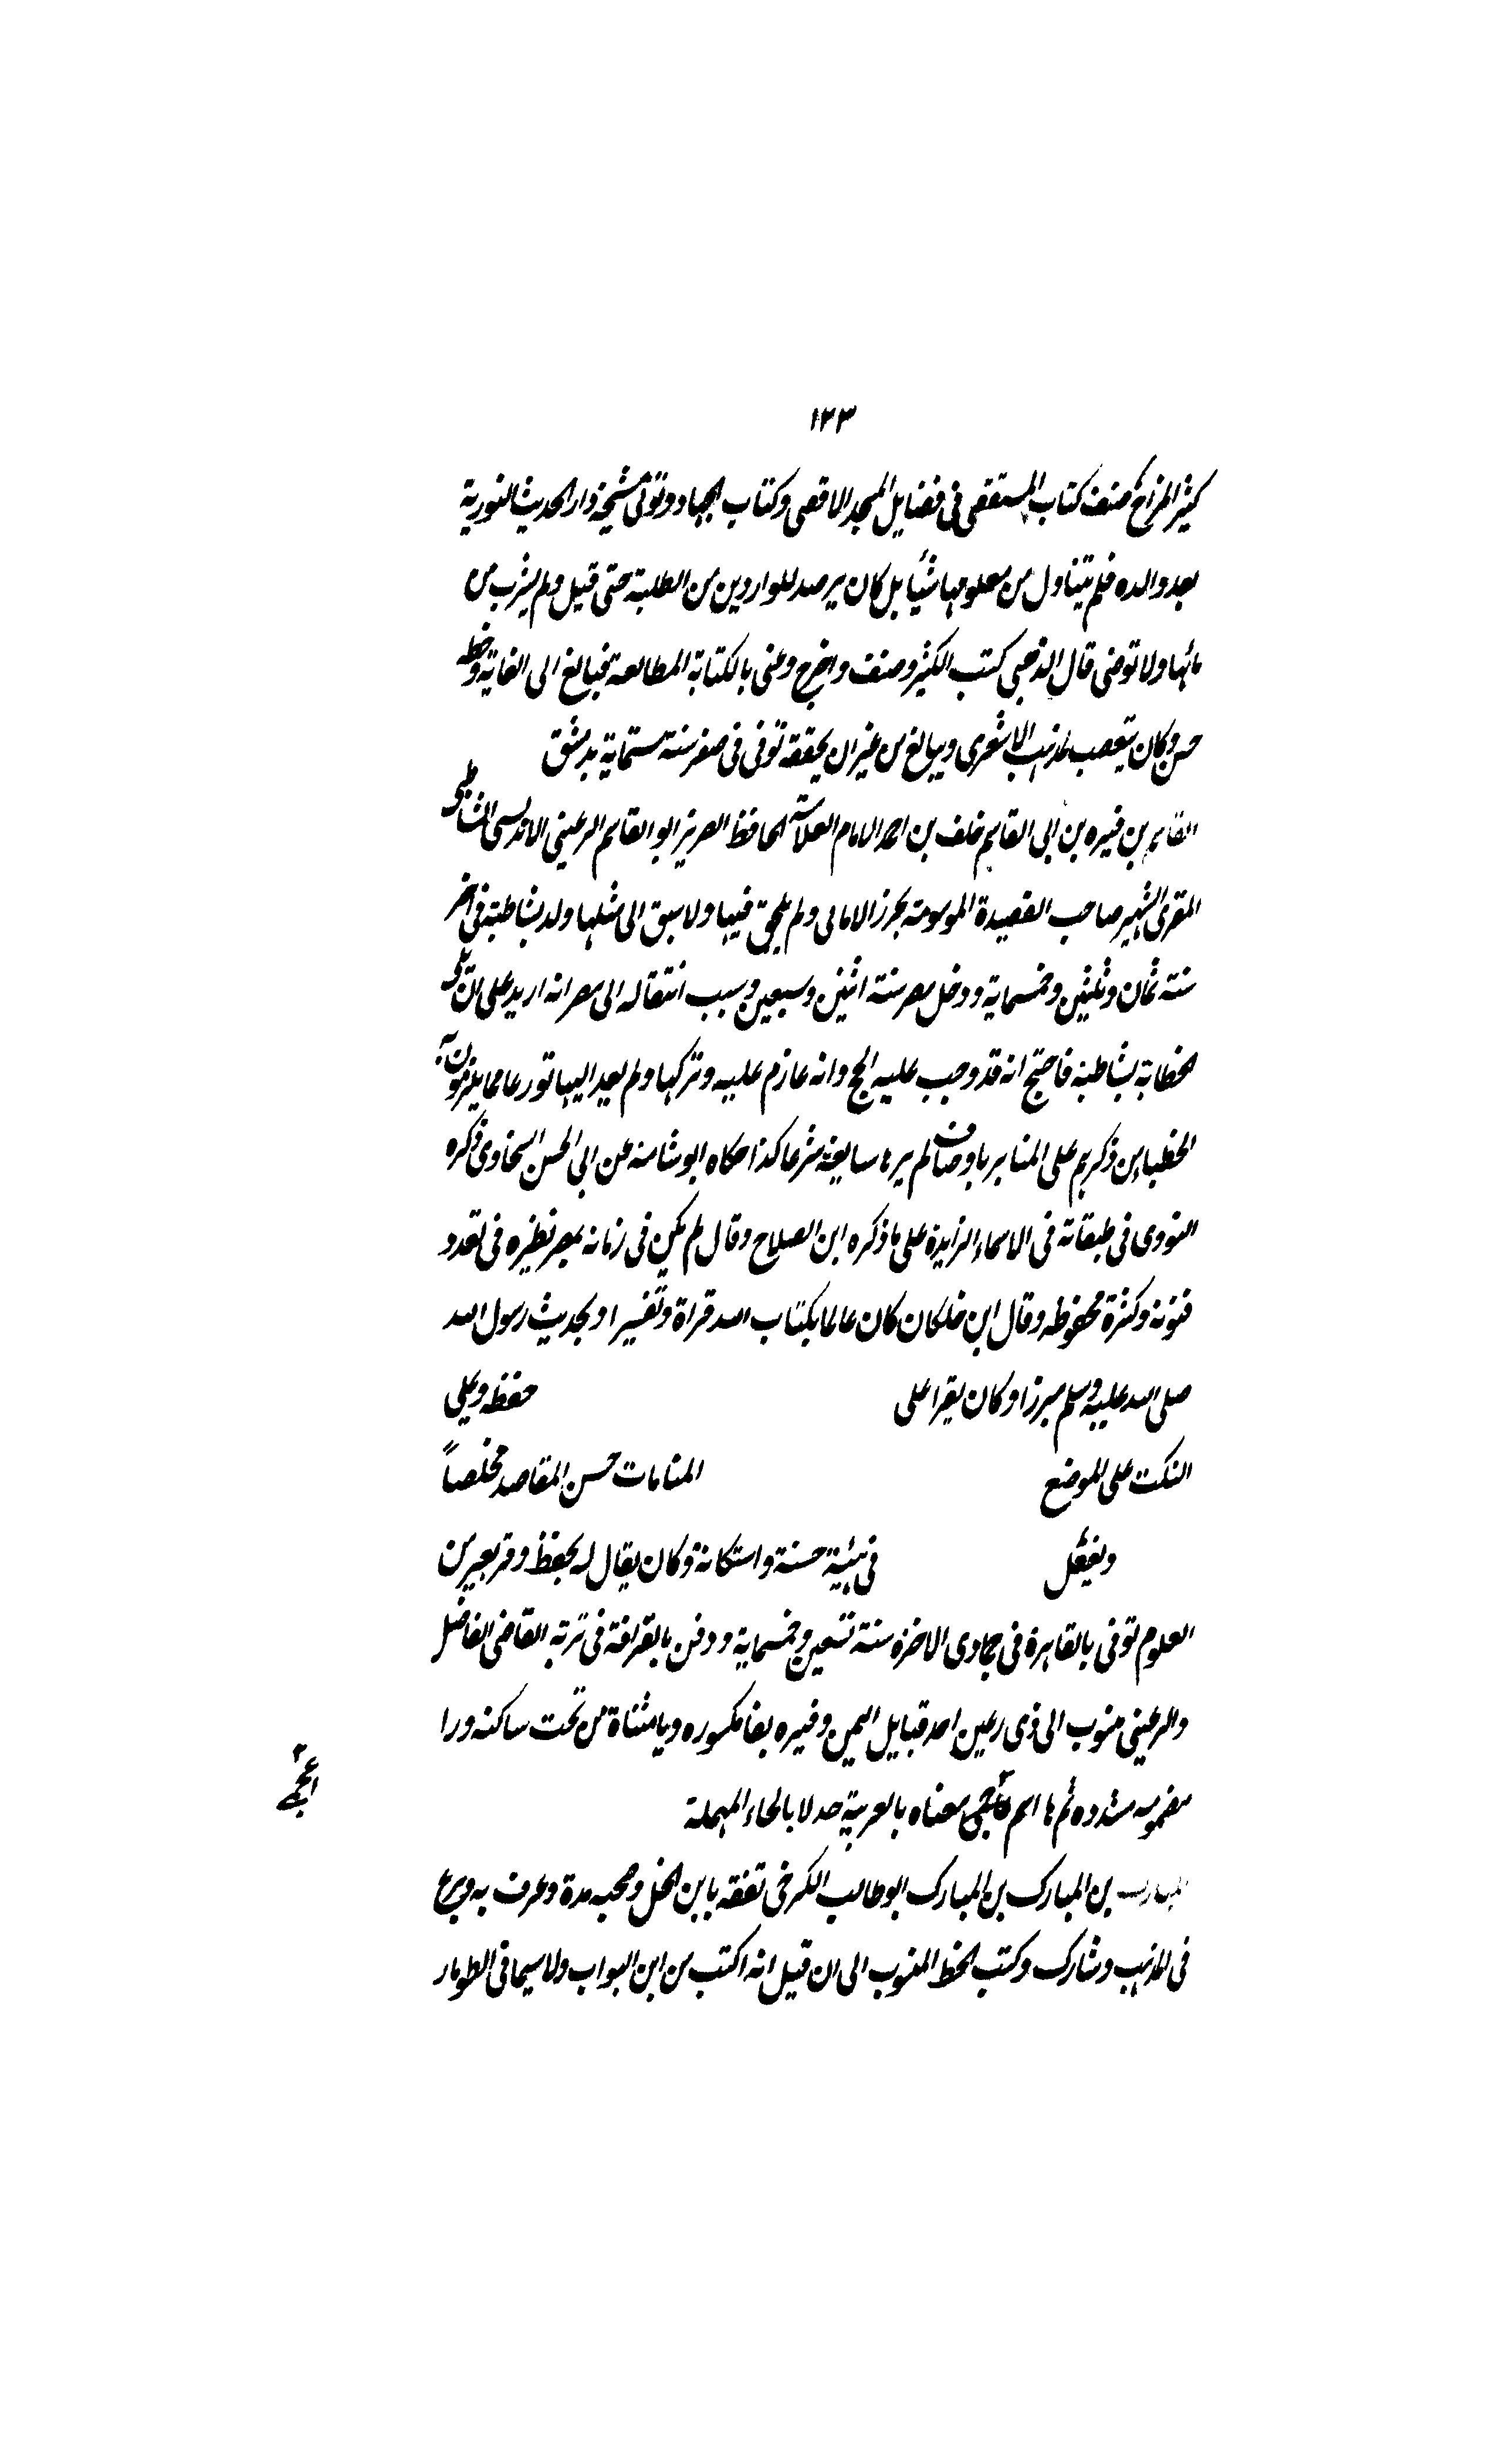 ١٢٣
كثير المزاح صنف كتاب المستقصى فى فضايل المسجد الاقصى وكتاب الجهاد وتولى مشيخة دار الحديث النورية
بعد والده فلم يتناول من معلومها شيئا بل كان يرصد للواردين من الطلبة حتى قيل ولم يشرب من
مائها ولا توضى قال الذهبى كتب الكثير وصنف وخرج وعنى بالكتابة المطالعة فبالغ الى الغاية وخطه
حسن وكان يتعصب لمذهب الاشعرى ويبالغ من غير ان يحققه توفى فى صفر سنة ستماية بدمشق
القاسم بن فيره بن ابى القاسم خلف بن احمد الامام العلامة الحافظ الضرير ابو القاسم الرعينى الاندلسى الشاطبى
المقرى الشهير صاحب القصيدة الموسومة بحرز الامانى ولم يلحق فيها ولا سبق الى مثلها ولد بشاطبة فى اخر
سنة ثمان وثلثين وخمسماية ودخل مصر سنة اثنين وسبعين وسبب انتقاله الى مصر انه اريد على ان يلى
الخطابة بشاطبة فاحتج انه قد وجب عليه الحج وانه عازم عليه وتركها ولم يعد اليها تورعا مما يلزمون به
الخطباء من ذكرهم على المنابر باوصاف لم يرها سايغة شرعا كذا حكاه ابو شامة عن ابى الحسن السخاوى ذكره
النووى فى طبقاته فى الاسماء الزايدة على ما ذكره ابن الصلاح وقال لم يكن فى زمانه بمصر نظيره فى تعدد
فنونه وكثرة محفوظه وقال ابن خلكان كان عالما بكتاب الله قراة وتفسيرا وبحديث رسول الله
صلى الله عليه وسلم مبرزا وكان يقرا على حفظه ويملى
النكت على الموضع المنامات حسن المقاصد مخلصاً
ويفعل فى هيئة حسنة واستكانة وكان يقال له يحفظ وقر بعير من
العلوم توفى بالقاهرة فى جمادى الاخرة سنة تسعين وخمسماية ودفن بالقرافة فى تربة القاضى الفاضل
والرعينى منسوب الى ذى رعين احد قبايل اليمن وفيره بفا مكسوره ويا مثناة من تحت ساكنه ورا
مضمومه مشدده ثم ها اسم معناه بالعربية حدلا بالحاء المهملة
المبارك بن المبارك بن المبارك ابو طالب الكرخى تفقه بابن الخل وصحبه مدة وعرف به وبرع
فى المذهب وشارك وكتب الخط المنسوب الى ان قيل انه اكتب من ابن البواب ولا سيما فى الطومار